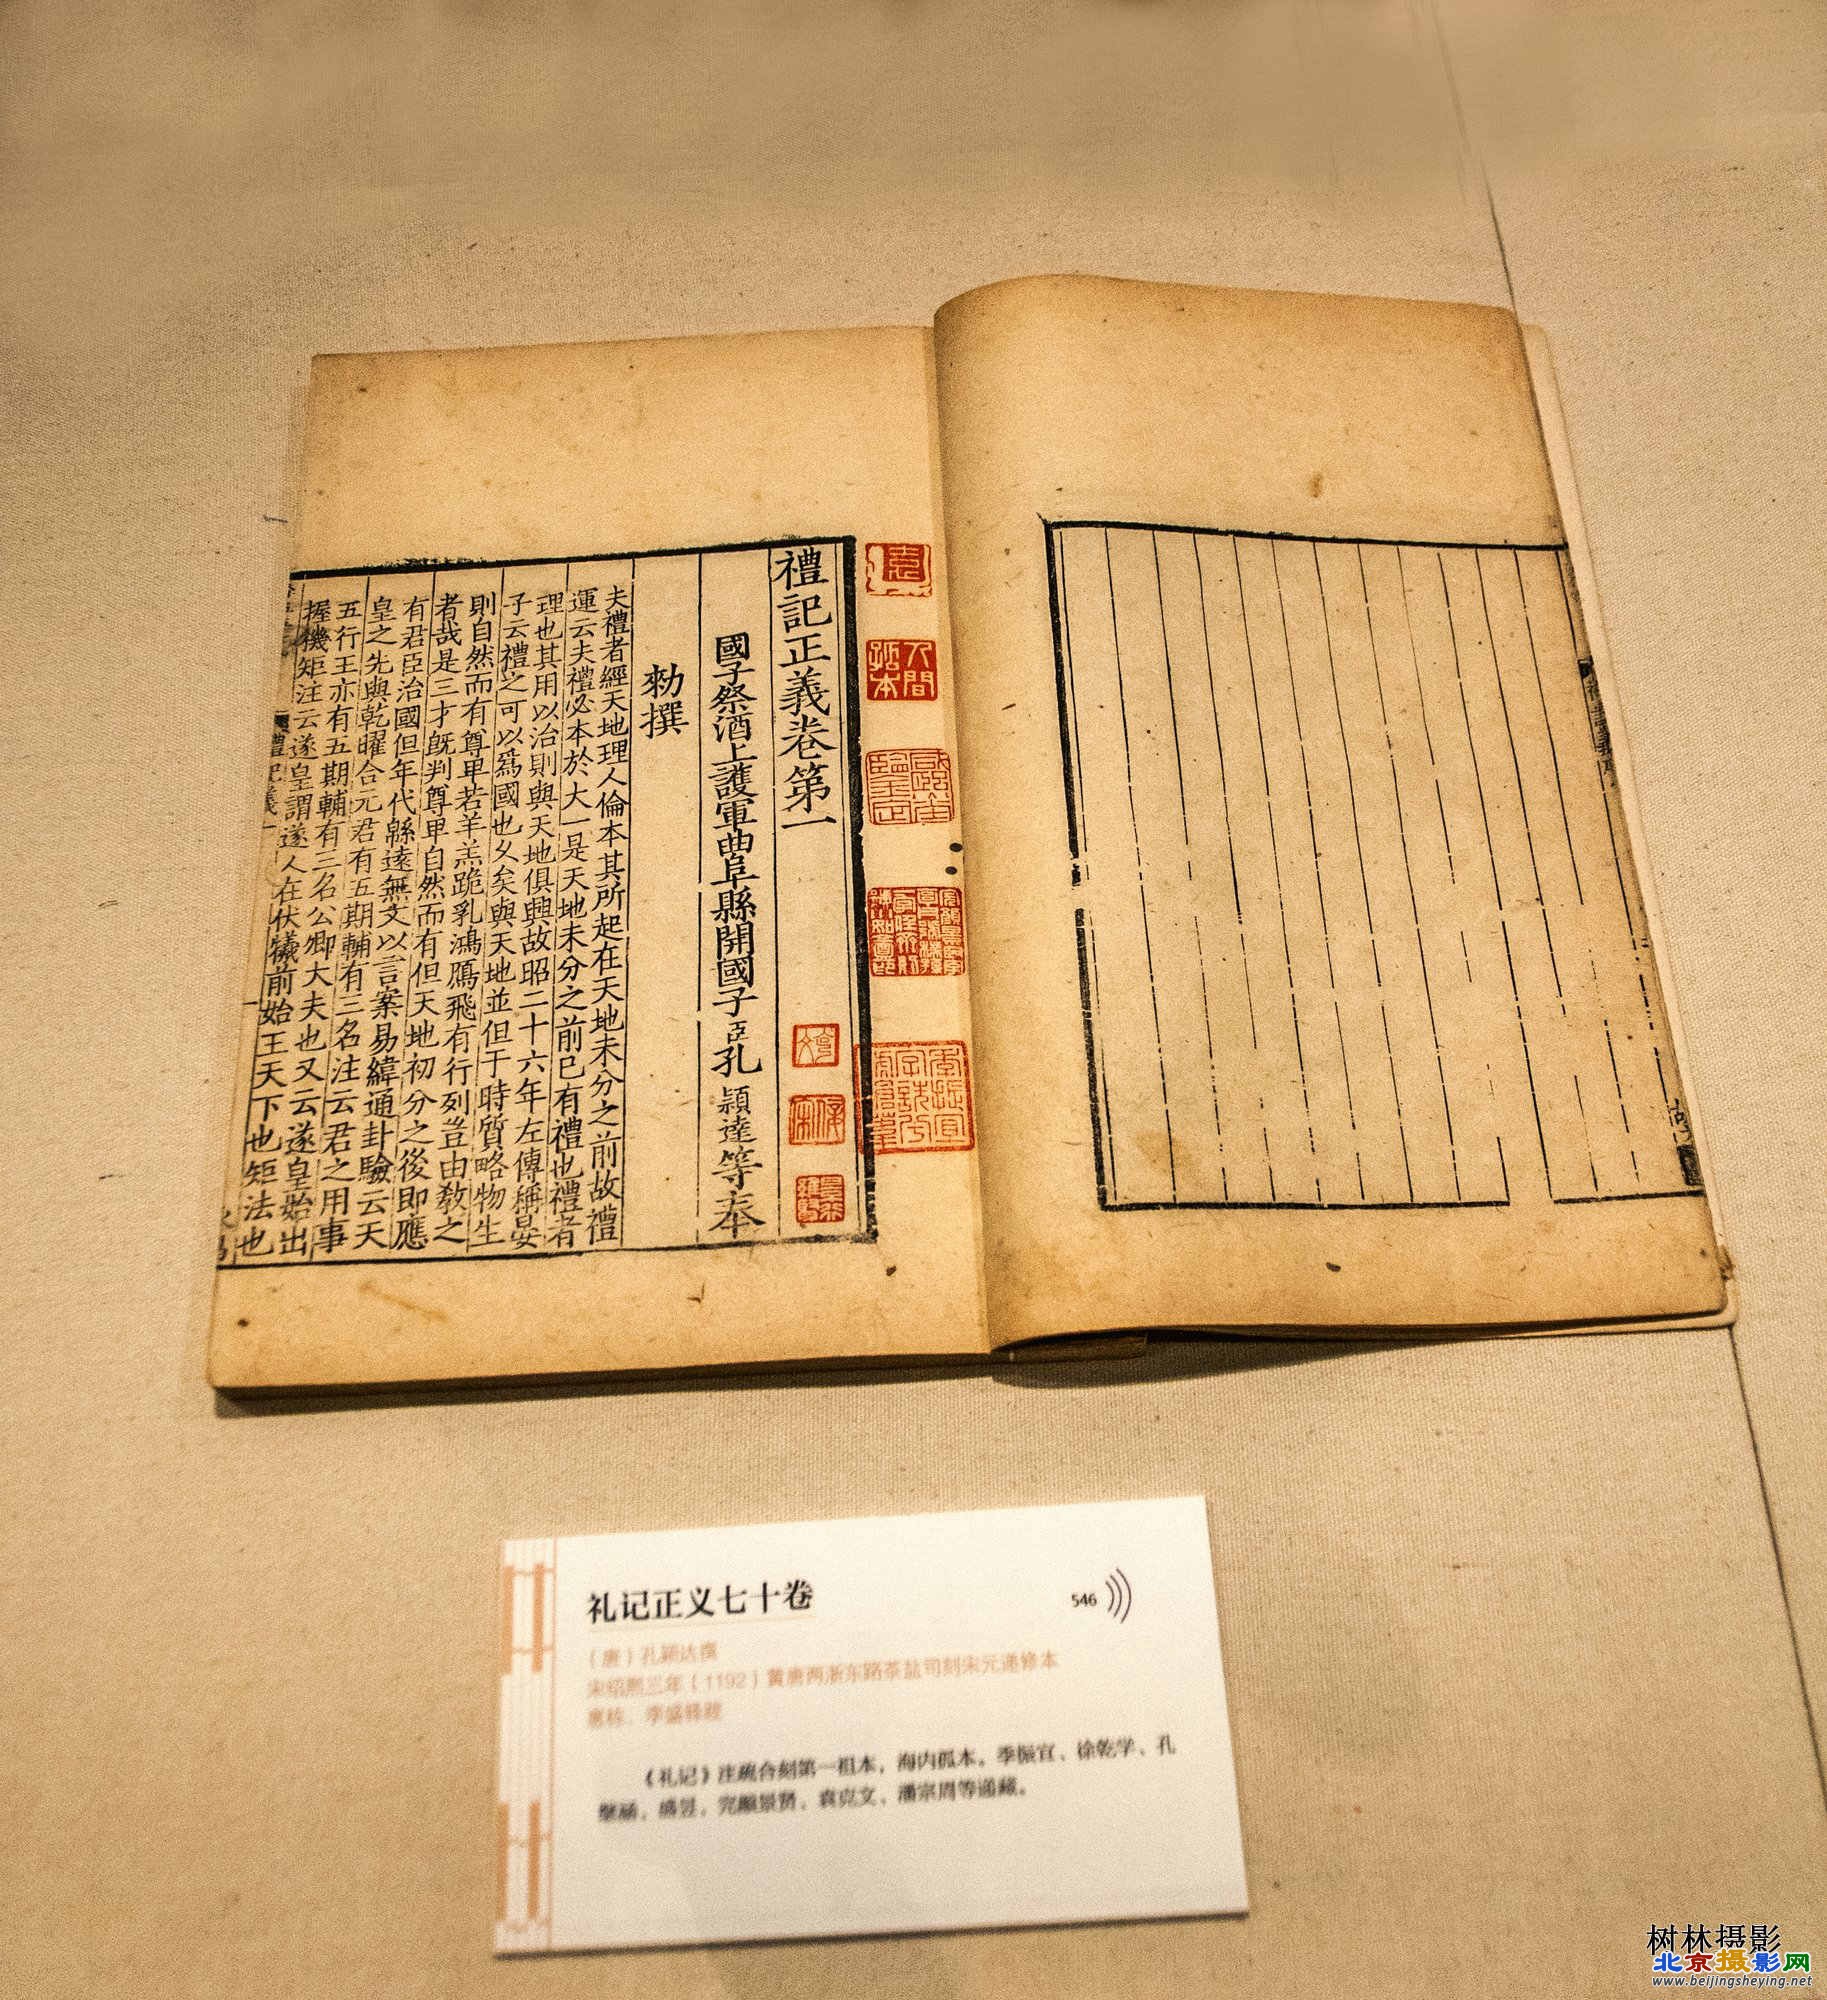 禮記正義卷第一
國子祭酒上護軍曲阜縣開國子臣孔穎達等奉
勑撰
夫禮者經天地理人倫本其所起在天地未分之前故禮
運云夫禮必本於大一是天地未分之前已有禮也禮者
理也其用以治則與天地俱興故昭二十六年左傳稱晏
子云禮之可以爲國也乆矣與天地並但于時質略物生
則自然而有尊卑若羊羔跪乳鴻鴈飛有行列豈由敎之
者哉是三才旣判尊卑自然而有但天地初分之後即應
有君臣治國但年代緜遠無文以言案易緯通卦驗云天
皇之先與乾曜合元君有五期輔有三名注云君之用事
五行王亦有五期輔有三名公卿大夫也又云遂皇始出
握機矩注云遂皇謂遂人在伏犧前始王天下也矩法也
禮記義一
人間孤本
礼记正义七十卷
546
（唐）孔颖达撰
宋绍熙三年（1192）黄唐两浙东路茶盐司刻宋元递修本
惠栋、李盛铎跋
《礼记》注疏合刻第一祖本，海内孤本。季振宜、徐乾学、孔
继涵、盛昱、完颜景贤、袁克文、潘宗周等递藏。
树林摄影
北京摄影网
www.beijingsheying.net